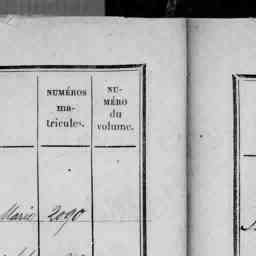 NUMÉROS
ma-
tricules.
NU-
MÉRO
du
volume.
Marie 2090